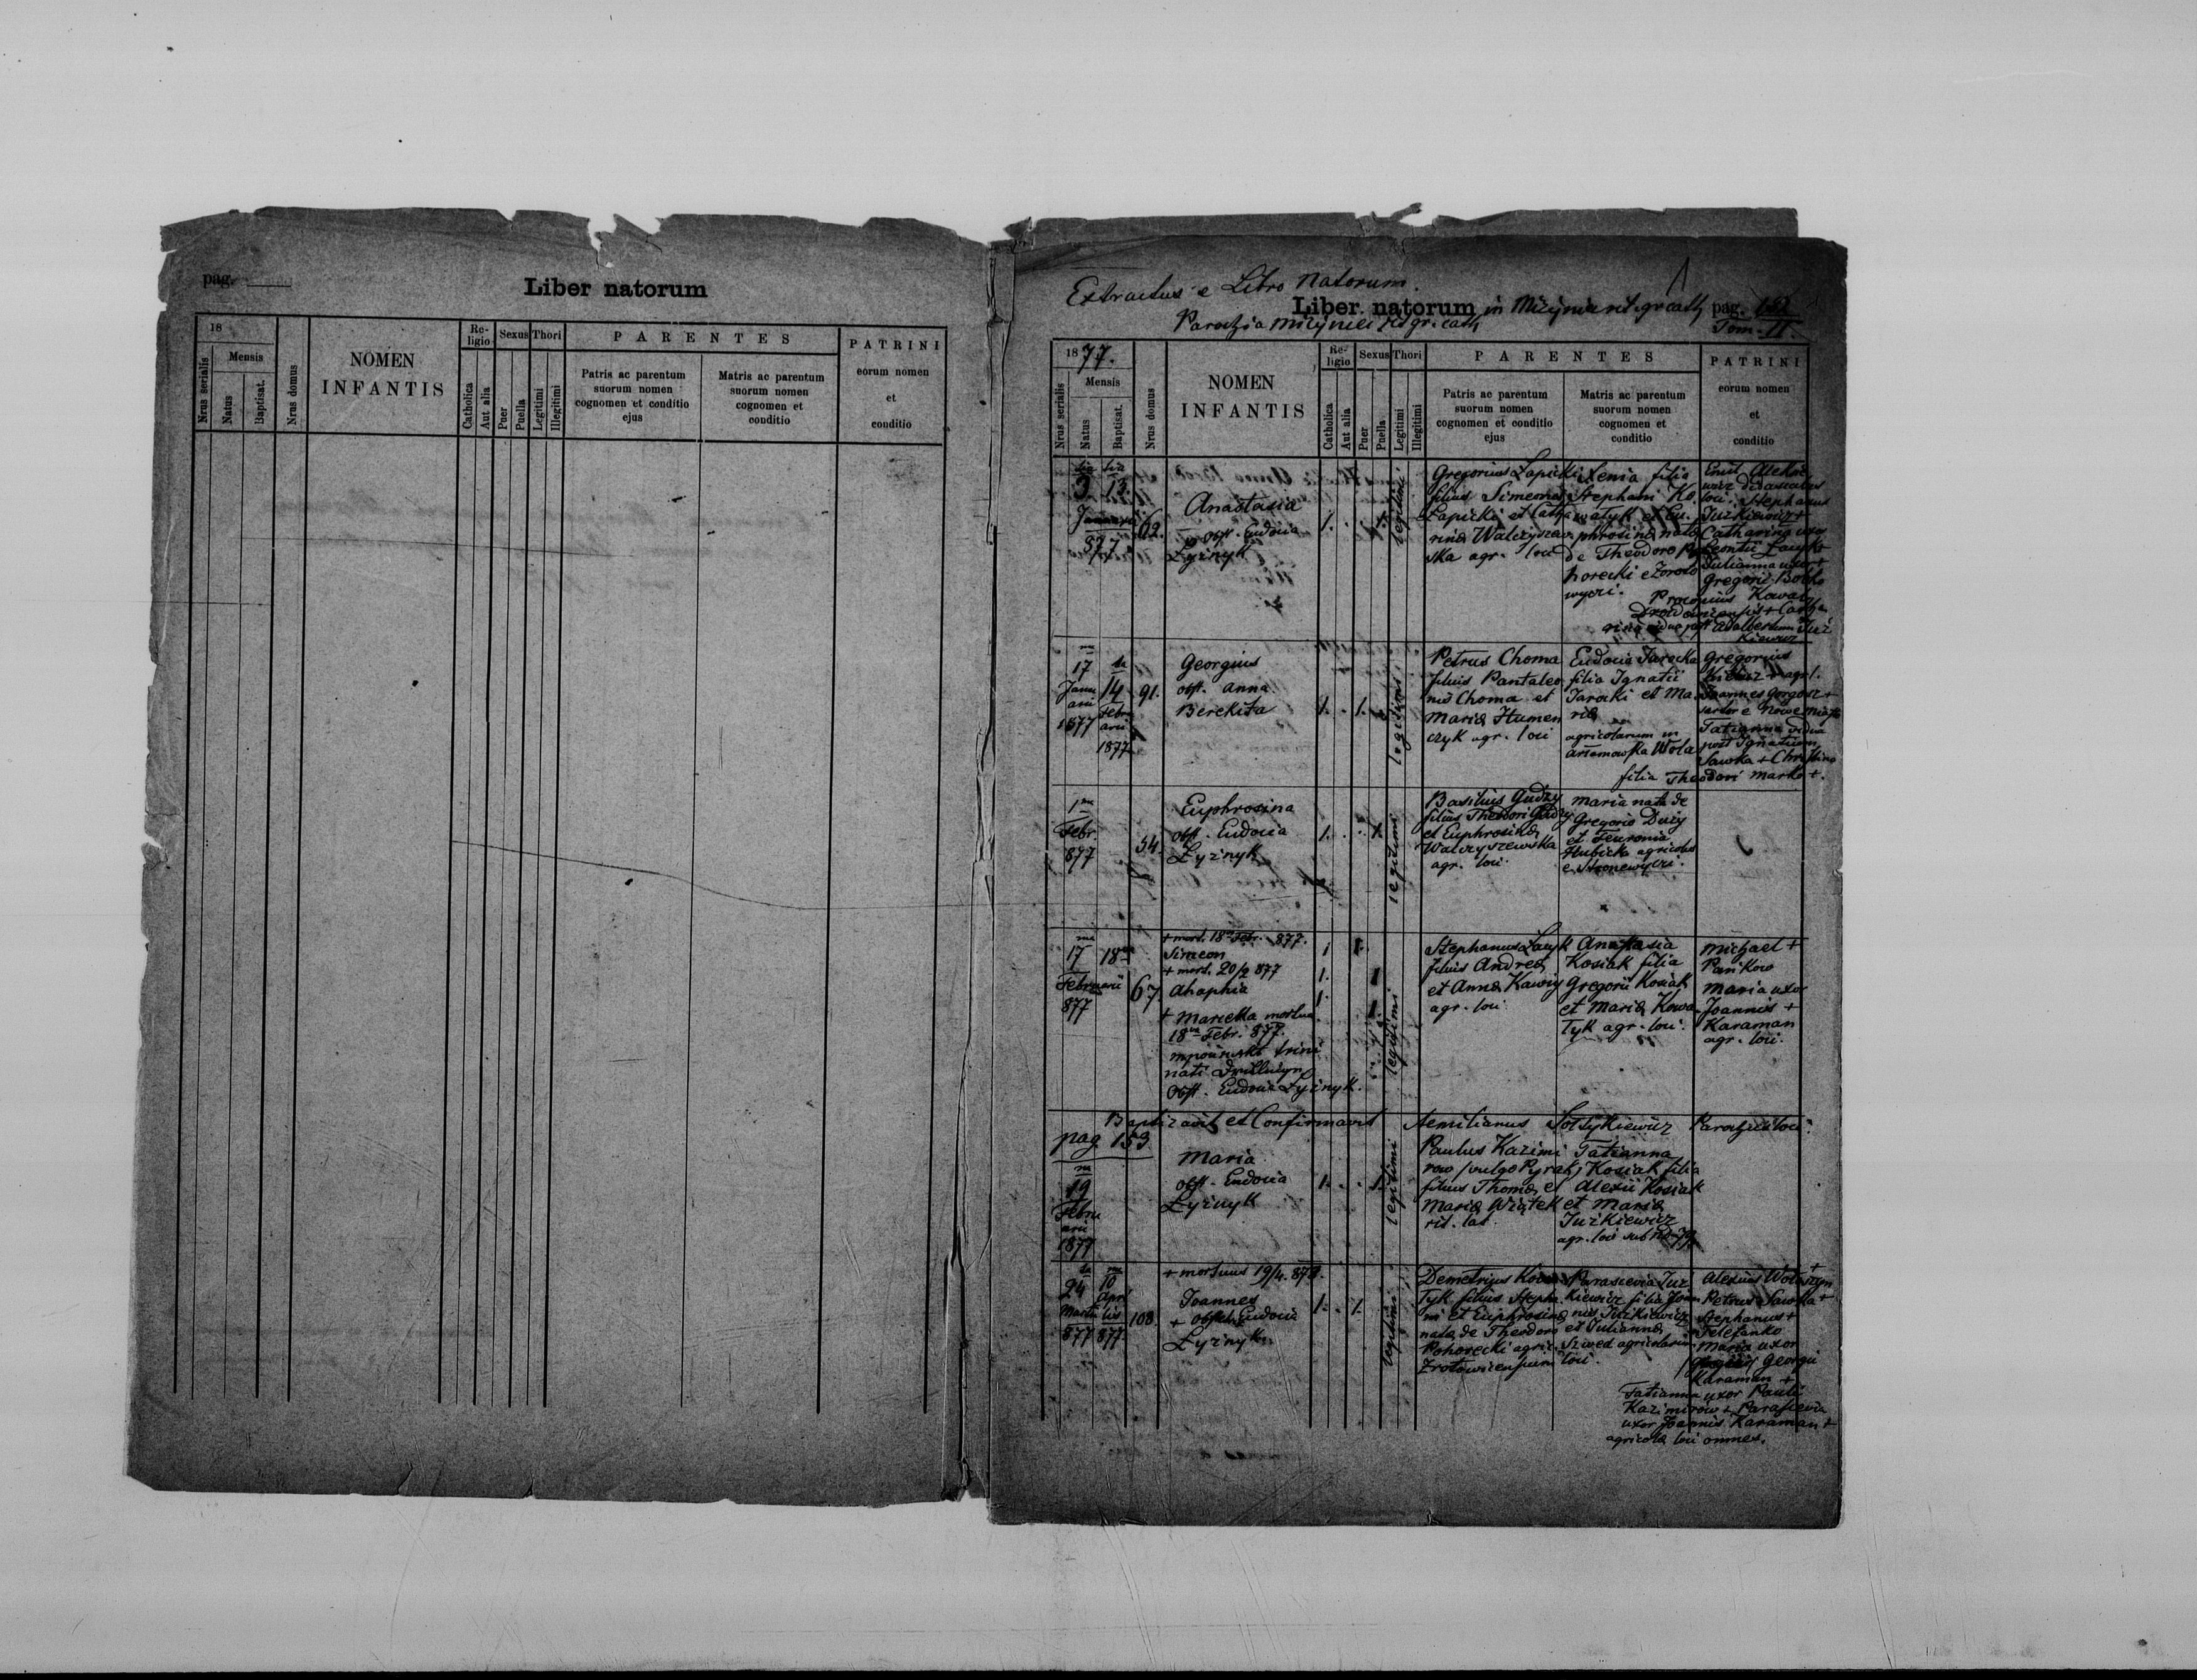 pag.
Liber natorum
18
Nrus serialis
Mensis
Natus
Baptisat.
Nrus domus
NOMEN
INFANTIS
Re-
ligio
Catholica
Aut alia
Sexus
Puer
Puella
Thori
Legitimi
Illegitimi
PARENTES
Patris ac parentum
suorum nomen
cognomen et conditio
ejus
Matris ac parentum
suorum nomen
cognomen et
conditio
PATRINI
eorum nomen
et
conditio
1
Extractus e Libro Natorum.
Liber natorum in Mizyniec rit. gr. cath. pag. 152
Parochia Mizyniec rit. gr. cath.
Tom. II.
1877.
Nrus serialis
Mensis
Natus
Baptisat.
Nrus domus
NOMEN
INFANTIS
Re-
ligio
Catholica
Aut alia
Sexus
Puer
Puella
Thori
Legitimi
Illegitimi
PARENTES
Patris ac parentum
suorum nomen
cognomen et conditio
ejus
Matris ac parentum
suorum nomen
cognomen et
conditio
PATRINI
eorum nomen
et
conditio
3 13
Januarii
877
62.
Anastasia
obst. Eudocia
Łyżnyk
1. 1.
legitimi
Gregorius Łapicki
filius Simeonis
Łapicki et Catha
rina Walczyszew
ska agr. loci
Xenia filia
Stephani Ko
watyk et Eu-
phrosina nata
de Theodoro Po
horecki e Zroto
wyczi.
loci Stephanus
Juzkiewicz +
Catharina uxor
Leontii Łacyk +
Julianna uxor +
Gregorii
Kowal
+ Catha
rina vidua post Adalbertum Juz
kiewicz
17
Janu
arii
1877
14
Febru
arii
1877
91.
Georgius
obst. Anna
Berekita
1. 1.
legitimi
Petrus Choma
filius Pantaleo
nis Choma et
Maria Humen
czyk agr. loci
Eudocia Jarocka
filia Ignatii
Jarocki et Ma
ria
agricolarum in
Artamowska Wola
Gregorius
agr. l.
Joannes Gorgosz +
sartor e Nowe miasto
Tatianna vidua
post Ignatium
Sawka + Christina
filia Theodori Marko +.
1ma
Febr.
877
54
Euphrosina
obst. Eudocia
Łyżnyk
1. 1.
legitimi
Basilius Gudzy
filius Theodori Gudzy
et Euphrosina
Walczyszewska
agr. loci
Maria nata de
Gregorio Duzy
et Feuronia
Hubicka agricolis
e Stronewyczi.
17
Februarii
877
18
67
+ mort. 18 Febr. 877.
Simeon
+ mort. 20/2 877
Ahaphia
+ Marella mortua
18 Febr. 877.
trini
nati
Obst. Eudocia Łyżnyk.
1 1.
1. 1
1. 1.
legitimi
Stephanus Łacyk
filius Andrea
et Anna Kawiy
agr. loci
Anastasia
Kosiak filia
Gregorii Kosiak
et Maria Kowa
tyk agr. loci.
Michael +
Pańkow
Maria uxor
Joannis +
Karaman
agr. loci.
Baptizavit et Confirmavit Aemilianus Sołtykiewicz Parochus loci.
pag 153
19
Febru
arii
1877
Maria
obst. Eudocia
Łyżnyk
1. 1.
legitimi
Paulus Kazimi
row (vulgo Pyrak)
filius Thoma et
Maria Wiątek
rit. lat.
Tatianna
Kosiak filia
Alexii Kosiak
et Maria
Juzkiewicz
agr. loci sub No 79
24
Martii
877
10
Apri
lis
877
108
+ mortuus 19/4. 878.
Joannes
+ obst. Eudocia
Łyżnyk
1. 1.
legitimi
Demetrius Kowa
tyk filius Stepha
ni et Euphrosina
nata de Theodoro
Pohorecki agric.
Zrotowicensium
Parascevia Juz
kiewicz filia Joan
nis Juzkiewicz
et Julianna
Szwed agricolarum
loci.
Alexius Wołoszyn +
Petrus Sawka +
Stephanus +
Telefanko
Maria uxor
Georgii
Karaman +
Tatianna uxor Pauli
Kazimirow + Parascevia
uxor Joannis Karaman +
agricola loci omnes.